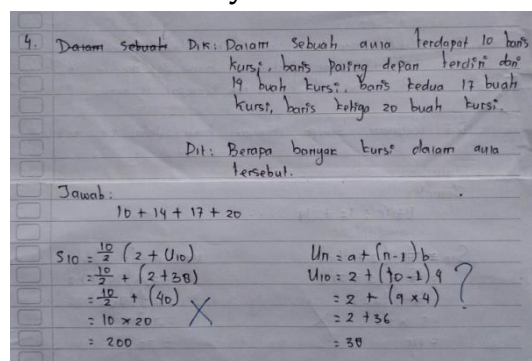 4. Dalam sebuah Dik: Dalam sebuah aula terdapat 10 baris
kursi, baris paling depan terdiri dari
19 buah kursi, baris kedua 17 buah
kursi, baris ketiga 20 buah kursi.
Dit: Berapa banyak kursi dalam aula
tersebut.
Jawab:
10 + 14 + 17 + 20
S10 = 10/2 (2 + U10)
= 10/2 + (2+38)
= 10/2 + (40)
= 10 × 20
= 200
Un = a + (n-1) b
U10 = 2 + (10-1) 4
= 2 + (9 × 4) ?
= 2 + 36
= 38